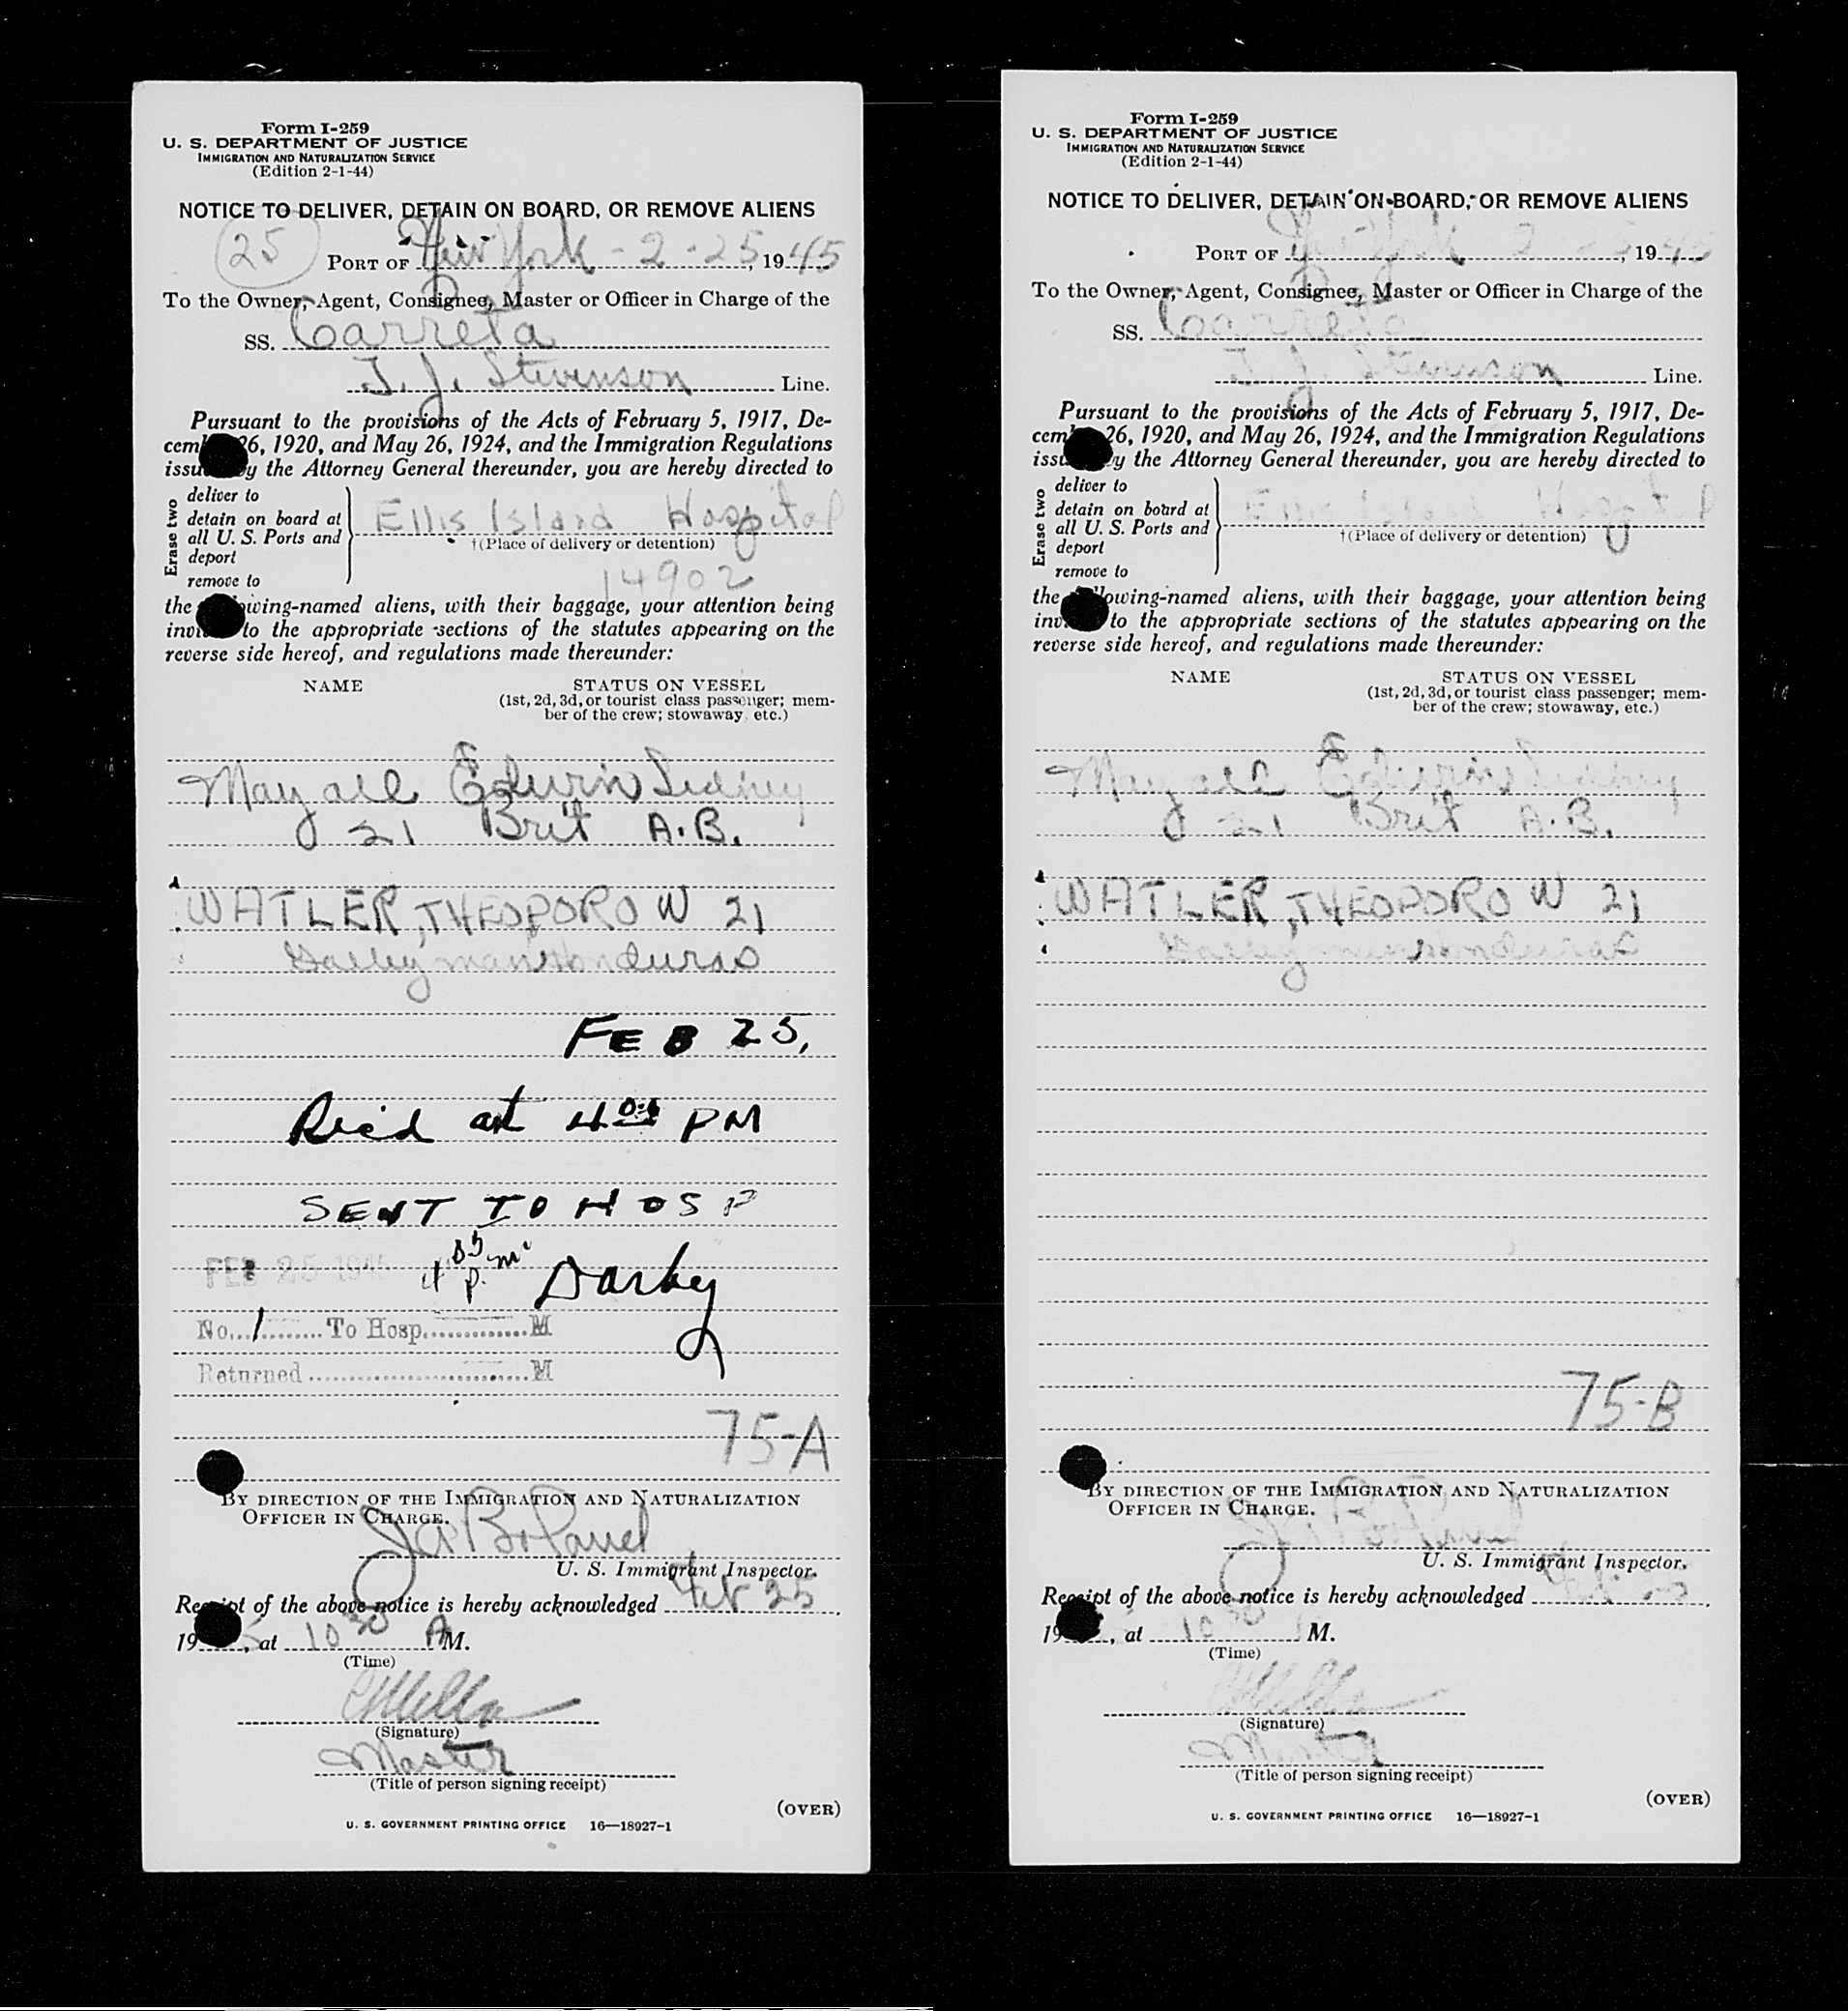 Form I-259
U. S. DEPARTMENT OF JUSTICE
IMMIGRATION AND NATURALIZATION SERVICE
(Edition 2-1-44)
NOTICE TO DELIVER, DETAIN ON BOARD, OR REMOVE ALIENS
25
PORT OF New York - 2 - 25, 1945
To the Owner, Agent, Consignee, Master or Officer in Charge of the
SS. Carreta
J. J. Stevenson Line.
Pursuant to the provisions of the Acts of February 5, 1917, De-
cem 26, 1920, and May 26, 1924, and the Immigration Regulations
issu y the Attorney General thereunder, you are hereby directed to
Erase two
deliver to
detain on board at
all U. S. Ports and
deport
remove to
Ellis Island Hospital
†(Place of delivery or detention)
14902
the owing-named aliens, with their baggage, your attention being
invi to the appropriate sections of the statutes appearing on the
reverse side hereof, and regulations made thereunder:
NAME STATUS ON VESSEL
(1st, 2d, 3d, or tourist class passenger; mem-
ber of the crew; stowaway, etc.)
Mayall Edwin Sidney
21 Brit A.B.
WATLER, THEODORO W 21
Galleyman Honduras
FEB 25,
Rec'd at 4 00 PM
SENT TO HOSP
FEB 25 1945 4 05 p.m. Darby
No. 1 To Hosp. M
Returned M
75-A
BY DIRECTION OF THE IMMIGRATION AND NATURALIZATION
OFFICER IN CHARGE.
U. S. Immigrant Inspector.
Receipt of the above notice is hereby acknowledged Feb 25,
19 5, at 10 30 A M.
(Time)
(Signature)
Master
(Title of person signing receipt)
(OVER)
U. S. GOVERNMENT PRINTING OFFICE 16—18927-1
Form I-259
U. S. DEPARTMENT OF JUSTICE
IMMIGRATION AND NATURALIZATION SERVICE
(Edition 2-1-44)
NOTICE TO DELIVER, DETAIN ON BOARD, OR REMOVE ALIENS
PORT OF New York 2 - 25, 1945
To the Owner, Agent, Consignee, Master or Officer in Charge of the
SS. Carreta
J. J. Stevenson Line.
Pursuant to the provisions of the Acts of February 5, 1917, De-
cem 26, 1920, and May 26, 1924, and the Immigration Regulations
issu y the Attorney General thereunder, you are hereby directed to
Erase two
deliver to
detain on board at
all U. S. Ports and
deport
remove to
Ellis Island Hospital
†(Place of delivery or detention)
the llowing-named aliens, with their baggage, your attention being
inv to the appropriate sections of the statutes appearing on the
reverse side hereof, and regulations made thereunder:
NAME STATUS ON VESSEL
(1st, 2d, 3d, or tourist class passenger; mem-
ber of the crew; stowaway, etc.)
Mayall Edwin Sidney
21 Brit A.B.
WATLER, THEODORO W 21
Galleyman Honduras
75-B
BY DIRECTION OF THE IMMIGRATION AND NATURALIZATION
OFFICER IN CHARGE.
U. S. Immigrant Inspector.
Receipt of the above notice is hereby acknowledged Feb 25,
19 , at 10 30 M.
(Time)
(Signature)
Master
(Title of person signing receipt)
(OVER)
U. S. GOVERNMENT PRINTING OFFICE 16—18927-1